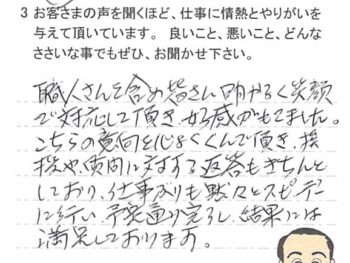 3 お客さまの声を聞くほど、仕事に情熱とやりがいを
与えて頂いています。 良いこと、悪いこと、どんな
ささいな事でもぜひ、お聞かせ下さい。
職人さんを含め皆さん明かるく笑顔
で対応して頂き、好感がもてました。
こちらの意向を心よくくんで頂き、挨
拶や、質問に対する返答もきちんと
しており、仕事ぶりも黙々とスピーデー
に行い、予定通り完了し、結果には
満足しております。